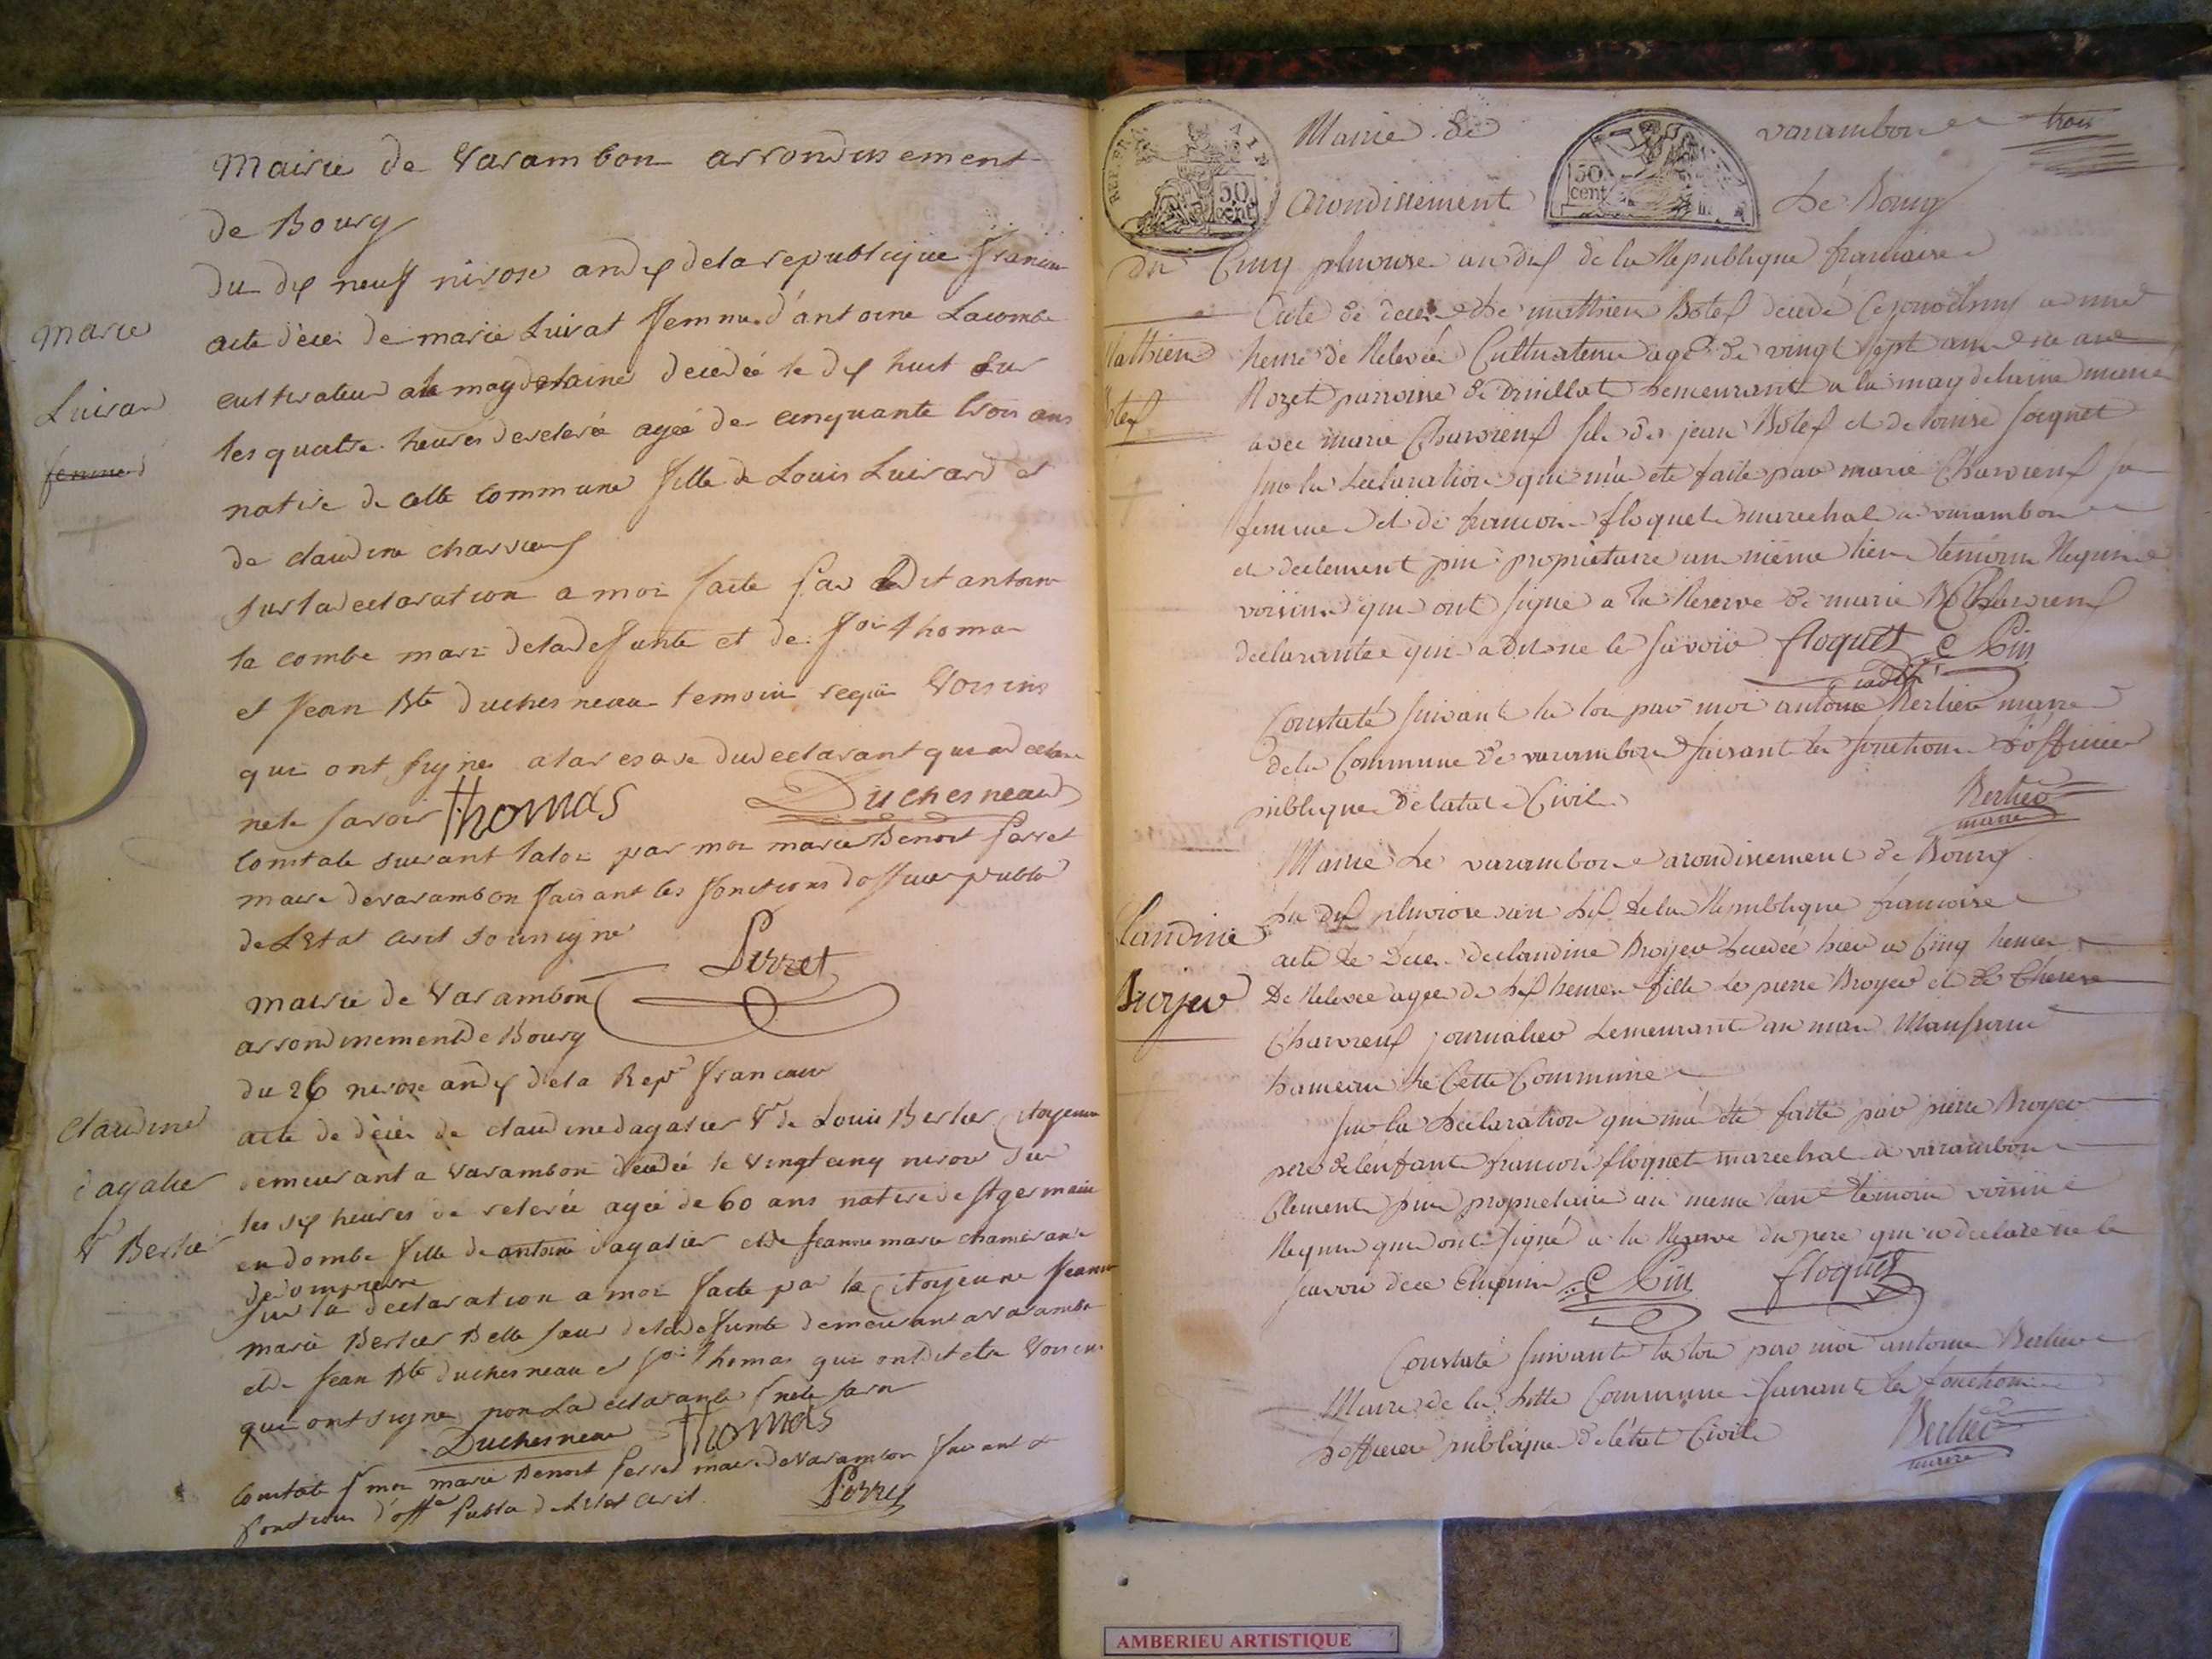 Mairie de Varambon arrondissement
de Bourg
du dix neuf nivose an dix de la republique francaise
Marie
Luirard
femme
acte décés de marie Luirat femme d'antoine Lacombe
cultivateur a la magdelaine decedée le dix huit sur
les quatre heures de relevée agée de cinquante trois ans
native de cette commune fille de Louis Luirard et
de claudine charvieux
sur la declaration a moi faite par ledit antoine
la combe mari de la defunte et de foi thomas
et jean Bte duchesneau temoin requi voisins
qui ont signe a la reserve du declarant qui a declare
nele savoir Thomas Duchesneau
Constaté suivant la loi par moi marie Benoit perret
maire de varambon faisant les fonctions d'officier public
de L'Etat civil soussigné
Perret
Mairie de Varambon
arrondissement de Bourg
du 26 nivose an dix de la Repe francaise
claudine
dagalier
Ve Berlier
acte de décés de claudine dagalier Ve de Louis Berlier Citoyenne
demeurant a varambon décédée le vingt cinq nivose sur
les six heures de relevée agée de 60 ans native de St germain
en dombe fille de antoine dagalier et de jeanne marie
sur la declaration a moi faite par la Citoyenne jeanne
marie Berlier Belle soeur de la defunte demeurant a varambon
et de jean Bte duchesneau et foi Thomas qui ont dit etre voisins
qui ont signe non La declarante
Duchesneau Thomas
Constaté p moi marie Benoit perret maire de varambon faisant
fonctions d'offer public de L'Etat civil
Perret
REP. FRA.
50 cent.
Mairie de varambon trois
50 cent
Arondissement de Bourg
Du Cinq pluviose an dix de la Republique francaise
Mathieu
Botex
Acte de deces de mathieu Botex decedé ce jourdhuy a une
heure de Relevée Cultivateur agé de vingt sept ans
Rozet parroisse de Druillat demeurant a la magdelaine marié
avec marie Charvieux fils de jean Botex et de louise joignet
sur la declaration qui m'a eté faite par marie Charvieux sa
femme et de francois floquet marechal a varambon
et declement pin propriétaire au même lieu temoin Requis
voisins qui ont signé a la Reserve de marie Charvieux
declarante qui a dit ne le savoir floquet C Pin
Constaté suivant la loi par moi antoine Berlier maire
de la Commune de varambon faisant les fonctions d'officier
publique de latat Civil
Berlier
maire
Mairie de varambon arondissement de Bourg
Claudine
Broyer
Du dix pluviose an dix de la Republique francoise
acte de deces de claudine Broyer decedée hier a Cinq heures
De Relevée agée de dix heures fille de pierre Broyer et de therese
Charvieux journalier demeurant au mas
hameau de Cette Commune
sur la declaration qui m'a été faite par pierre Broyer
pere de lenfant francois floquet marechal a varambon
Clement pin propriétaire au meme lieu temoin voisin
Requis qui ont signé a la Reserve du pere qui a declaré ne le
savoir de ce Enquis C Pin floquet
Constaté suivant la loi par moi antoine Berlier
Maire de la ditte Commune faisant les fonctions
d'officier publique de létat Civil
Berlier
maire
AMBERIEU ARTISTIQUE